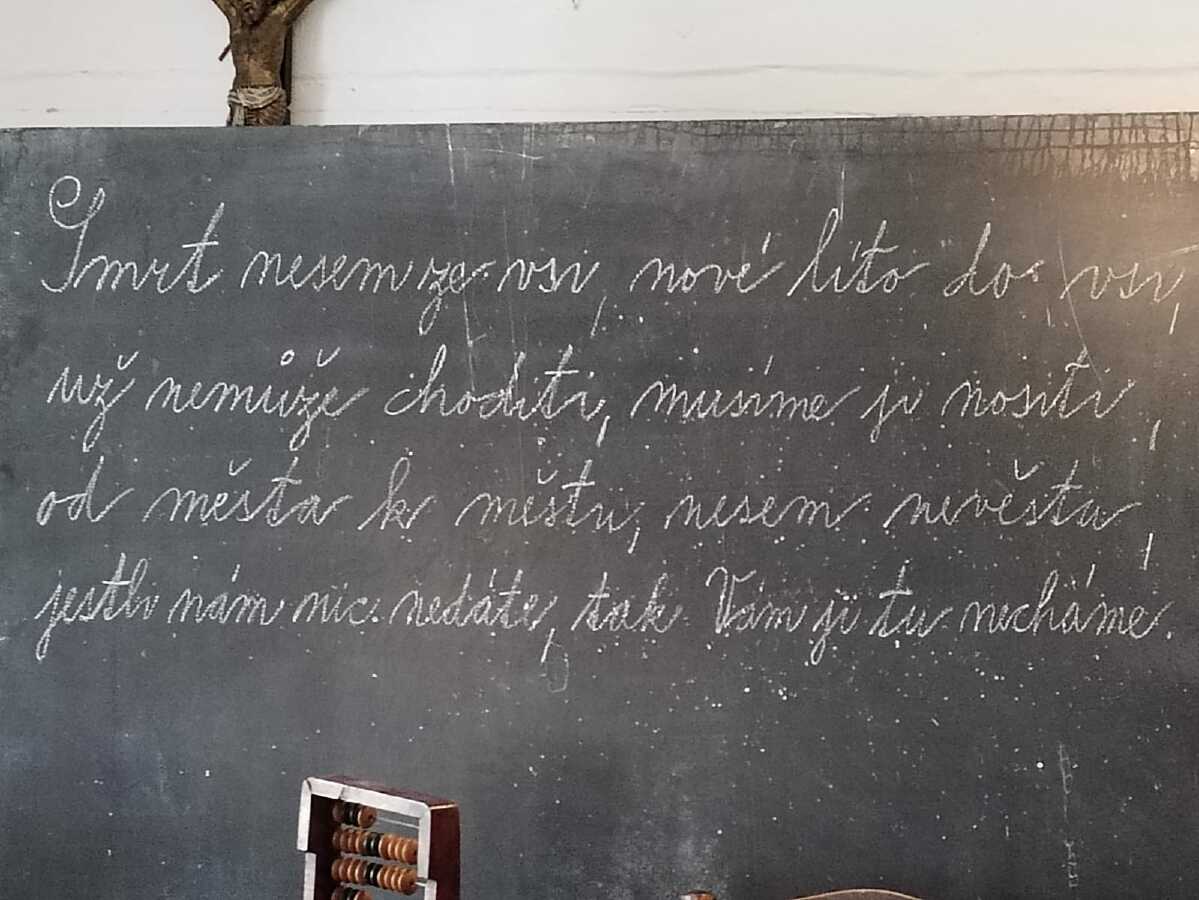 Smrt nesem ze vsi, nové líto do vsi,
už nemůže choditi, musíme ji nositi,
od města k městu, nesem nevěstu,
jestli nám nic nedáte, tak Vám ji tu necháme.